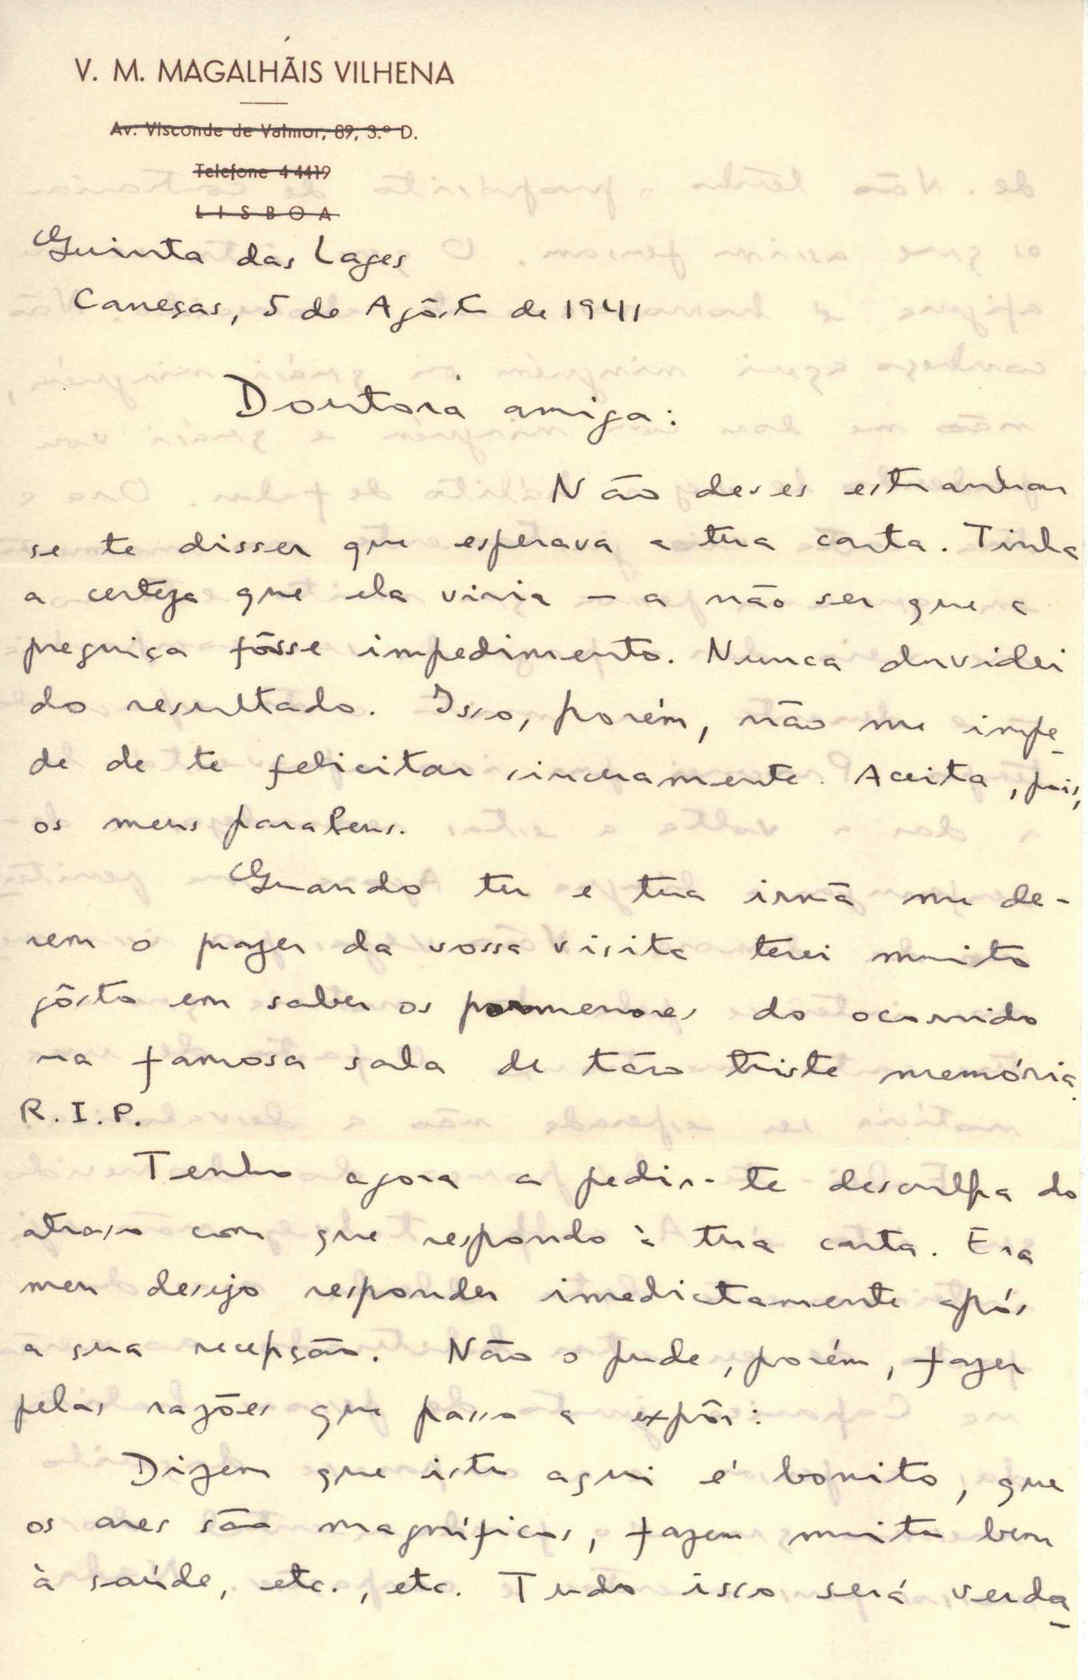 V. M. MAGALHÃIS VILHENA
Av. Visconde de Valmor, 89, 3.º D.
Telefone 4 4419
LISBOA
Quinta das Lages
Caneças, 5 de Agôsto de 1941
Doutora amiga:
Não deves estranhar
se te disser que esperava a tua carta. Tinha
a certeza que ela viria — a não ser que a
preguiça fôsse impedimento. Nunca duvidei
do resultado. Isso, porém, não me impe-
de de te felicitar sinceramente. Aceita, pois,
os meus parabens.
Quando tu e tua irmã me de-
rem o prazer da vossa visita terei muito
gôsto em saber os pormenores do ocorrido
na famosa sala de tão triste memória.
R.I.P.
Tenho agora a pedir-te desculpa do
atraso com que respondo à tua carta. Era
meu desejo responder imediatamente após
a sua recepção. Não o pude, porém, fazer
pelas razões que passo a expôr:
Dizem que isto aqui é bonito, que
os ares são magníficos, fazem muito bem
à saúde, etc., etc. Tudo isso será verda-